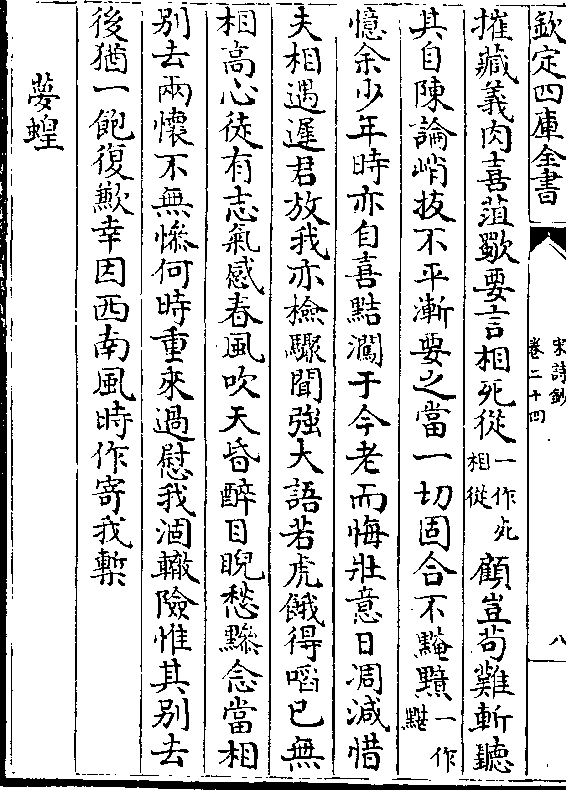 欽定四庫全書
宋詩鈔
卷二十四
八
摧藏義肉喜菹歜要言相死從一作死相從顧豈苟難斬聽
其自陳論峭抜不平漸要之當一切固合不黤黷一作黮
憶余少年時亦自喜點濶于今老而悔壯意日凋減惜
夫相遇遲君放我亦檢驟聞強大語若虎餓得啗已無
相高心徒有志氣感春風吹天昏醉目睨愁黲念當相
别去兩懷不無慘何時重來過慰我涸轍險惟其别去
後猶一飽復歉幸因西南風時作寄我槧
夢蝗